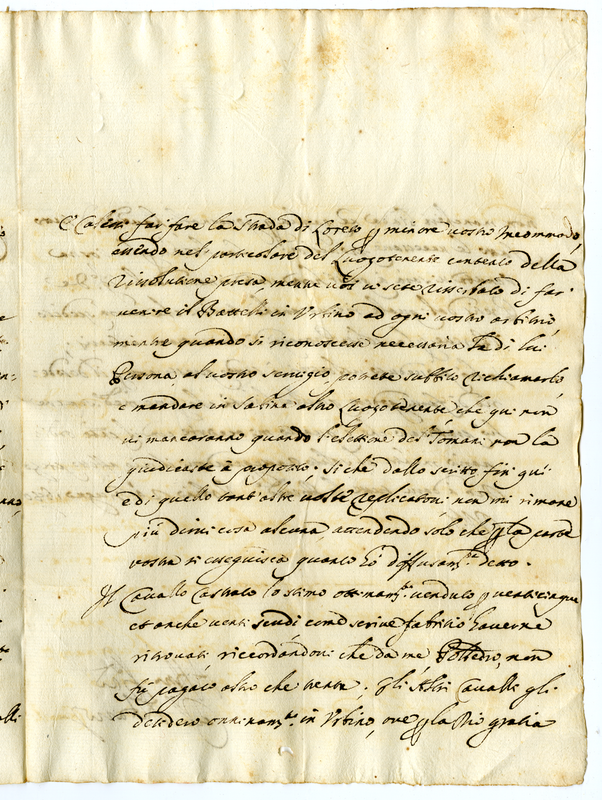 far fare la strada di Loreto p minore vostro incommodo,
essendo nel particolare del Luogotenente contento della
risolutione presa, mentre voi vi sete riserbato di far
venire il Battelli in Urbino ad ogni vostro arbitrio
mentre quando si riconoscesse necessaria la di lui
Persona, al vostro servigio, potrete subbito richiamarlo
e mandare in Sabina altro Luogotenente che qui non
vi mancaranno quando l'elettione del Tomani non la
giudicaste à proposito. Si che dallo scritto fin qui
e di quello tant'altre volte replicatovi non mi rimane
più dirvi cosa alcuna attendendo solo che p la parte
vostra si eseguisca quanto hò diffusam.te detto.
Il Cavallo Castrato lo stimo ottimam.te venduto p venticinque
et anche venti scudi come scrive Fabritio haverne
ritrovati riccordandovi che da me non
fù pagato altro che trenta. Gli Altri Cavalli gli
desidero onninam.te in Urbino, ove p la Dio gratia